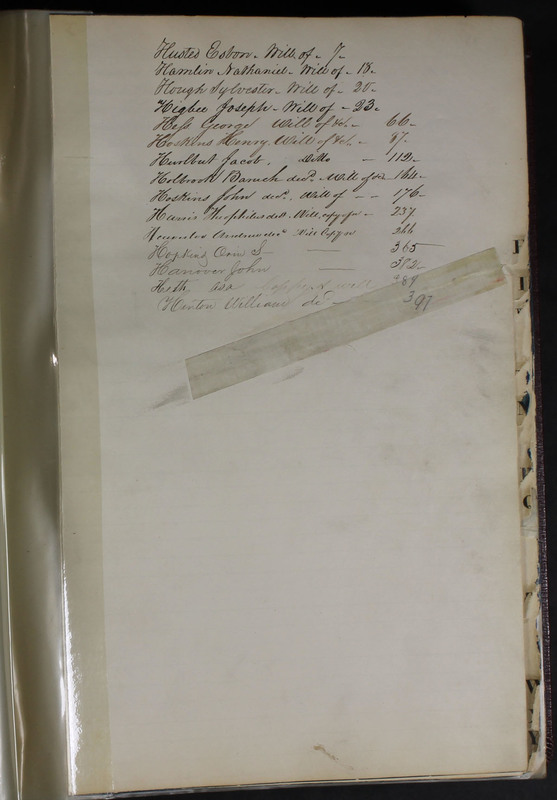 Husted Esbon - Will of - 7 -
Hamlin Nathaniel - Will of - 18 -
Hough Sylvester - Will of - 20 -
Higbee Joseph - Will of - 23 -
Hess George Will of &c. - 66 -
Hoskins Henry Will of &c. - 87 -
Hurlbut Jacob. Ditto - 112 -
Holbrook Baruch decd. Will of &c - 164 -
Hoskins John decd. Will of - - 176 -
Harris Theophilus decd. Will, copy of - 237
Will Copy 266
Hopkins Orm S - 365
Hanover John - 382 -
Heth Asa will 389
Hinton William decd - 397
F